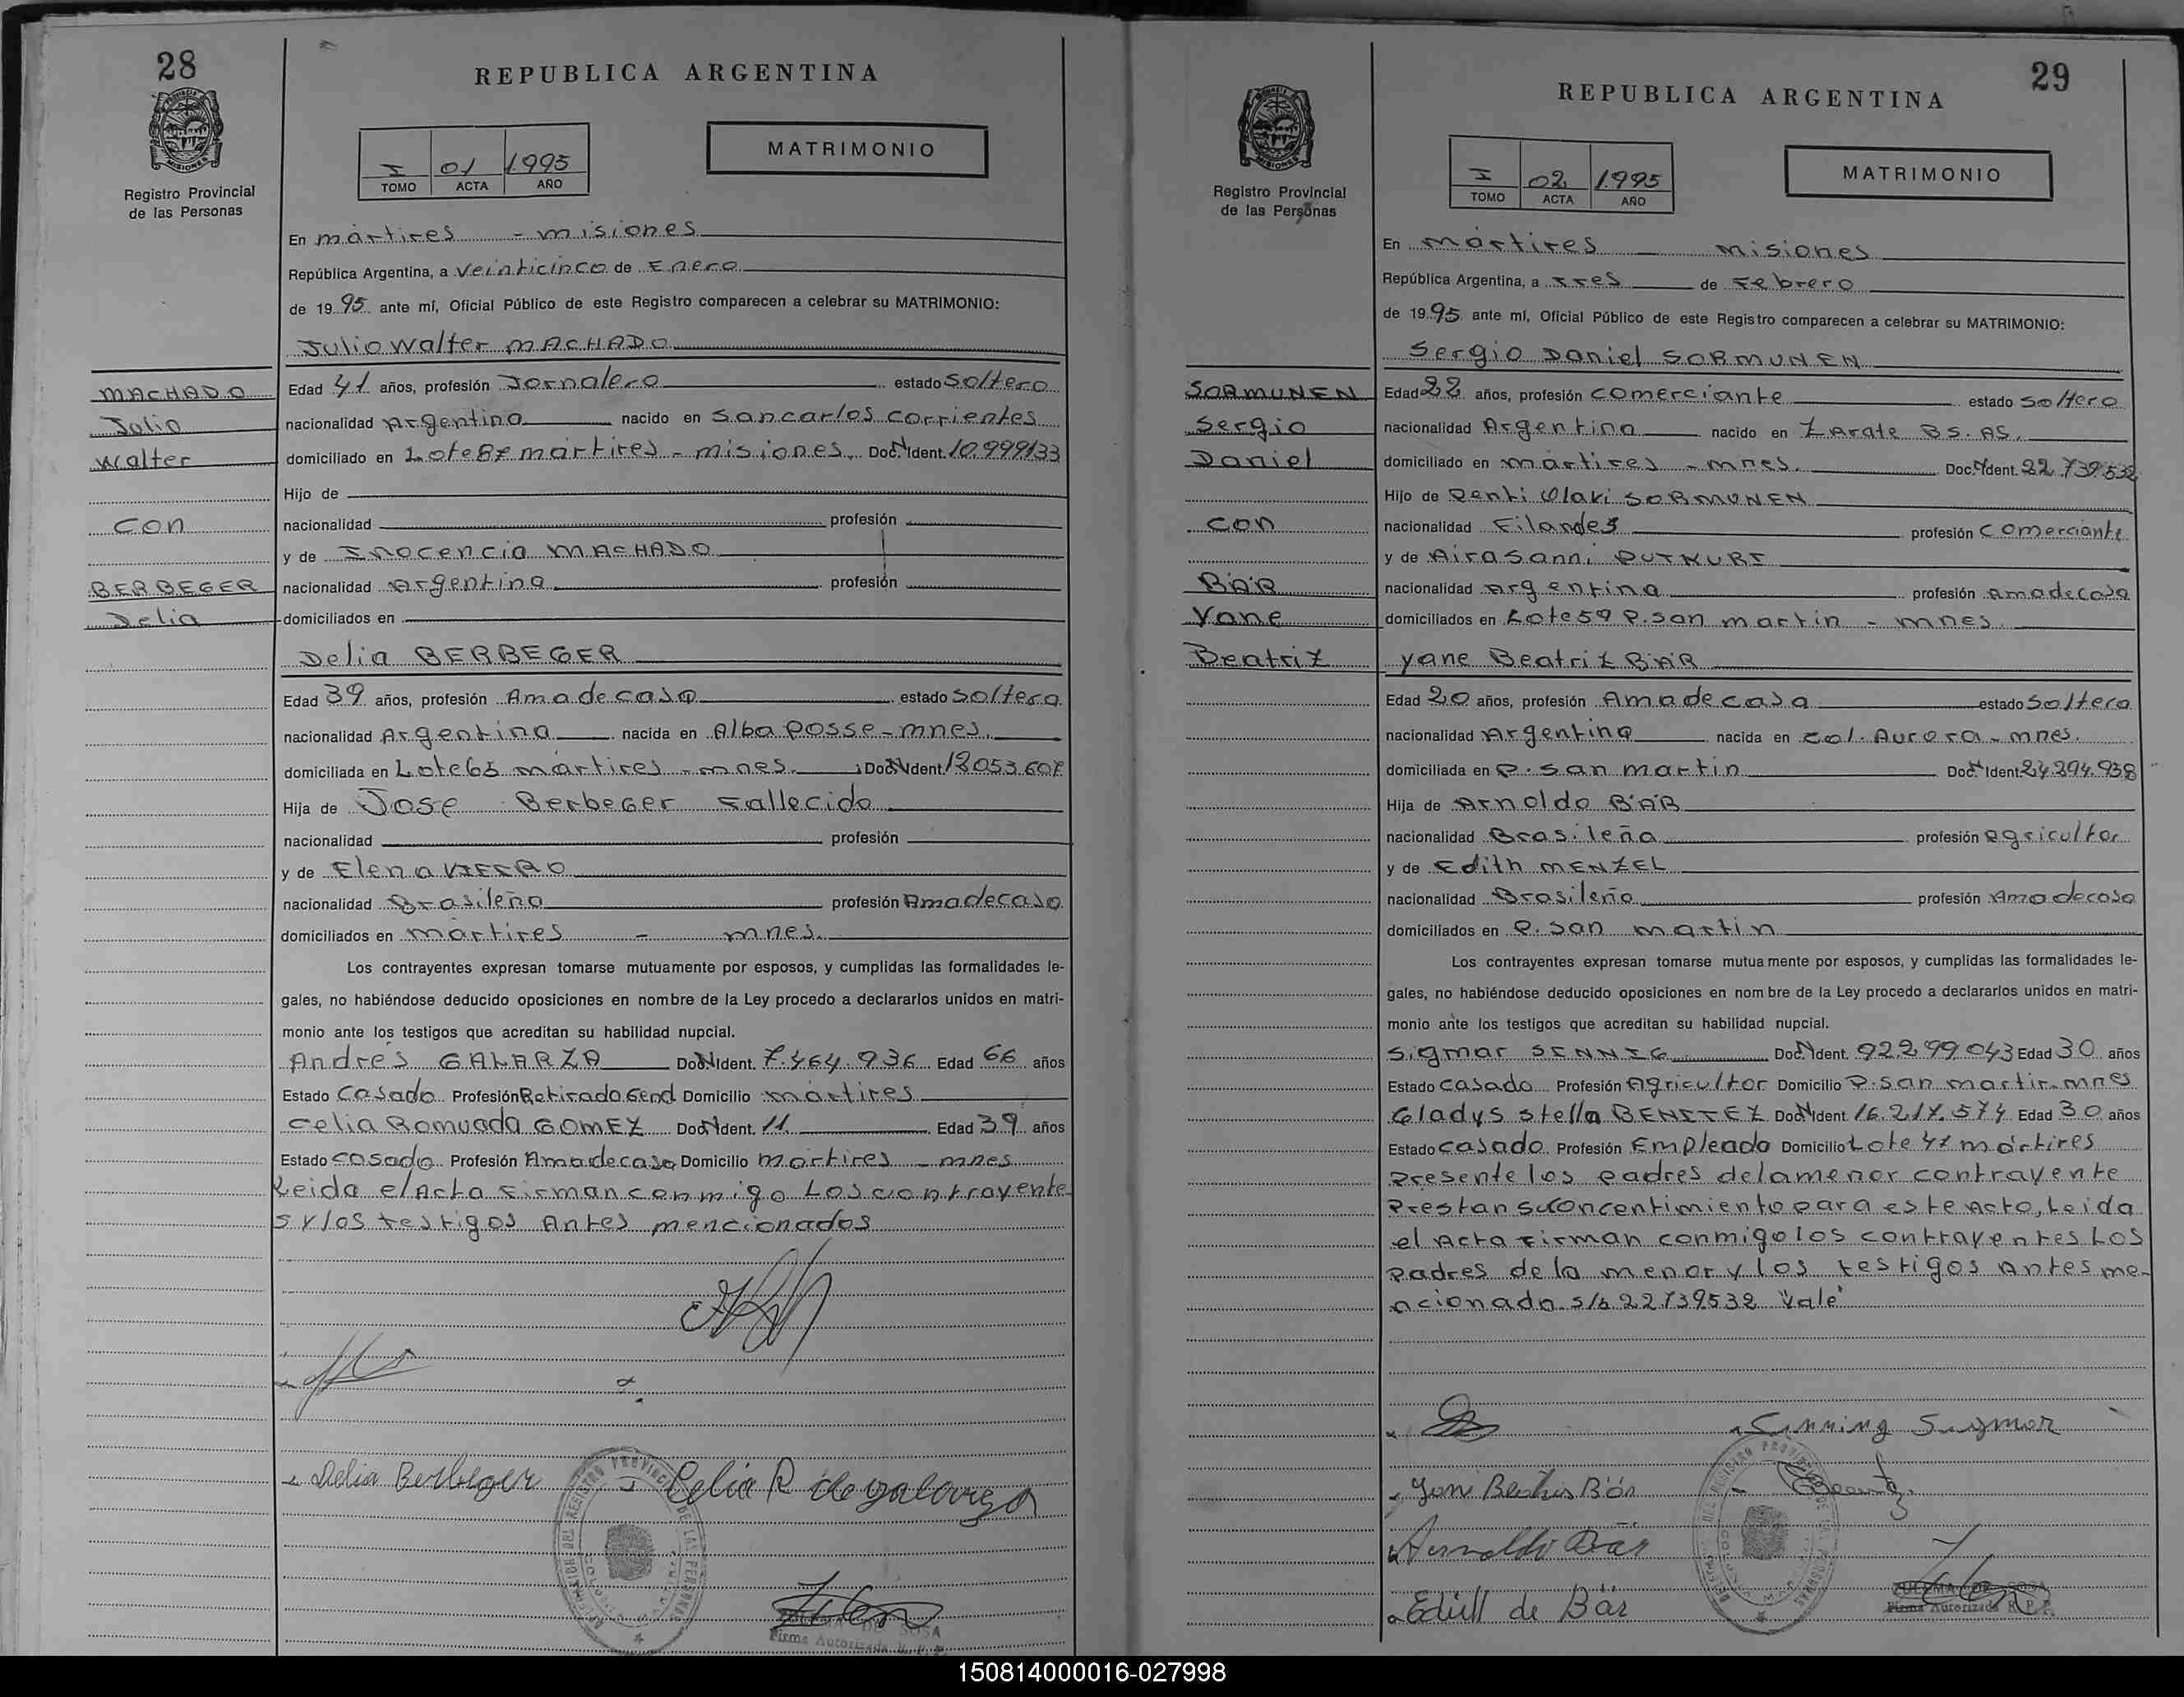 28
REPUBLICA ARGENTINA
Registro Provincial
de las Personas
I 01 1995
TOMO ACTA AÑO
MATRIMONIO
En mártires - misiones
República Argentina, a veinticinco de Enero
de 1995 ante mí, Oficial Público de este Registro comparecen a celebrar su MATRIMONIO:
Julio Walter MACHADO
MACHADO
Julio
Walter
con
BERBEGER
Delia
Edad 41 años, profesión Jornalero estado soltero
nacionalidad Argentina nacido en San carlos corrientes
domiciliado en Lote 87 mártires - misiones. Doc. N Ident. 10.999133
Hijo de
nacionalidad profesión
y de Inocencia MACHADO
nacionalidad Argentina profesión
domiciliados en
Delia BERBEGER
Edad 39 años, profesión Ama de casa estado soltera
nacionalidad Argentina nacida en Alba posse - mnes.
domiciliada en Lote 65 mártires - mnes. Doc. N Ident. 12053.607
Hija de Jose Berbeger Fallecido
nacionalidad profesión
y de Elena
nacionalidad Brasileña profesión Ama de casa
domiciliados en mártires - mnes.
Los contrayentes expresan tomarse mutuamente por esposos, y cumplidas las formalidades le-
gales, no habiéndose deducido oposiciones en nombre de la Ley procedo a declararlos unidos en matri-
monio ante los testigos que acreditan su habilidad nupcial.
Andrés GALARZA Doc. N Ident. 7.464.936 Edad 66 años
Estado Casado Profesión Retirado Gend Domicilio mártires
Celia Romuada GOMEZ Doc. N Ident. 11. Edad 39 años
Estado casada Profesión Ama de casa Domicilio mártires - mnes
Leida el Acta Firman conmigo Los contrayente
s y los testigos Antes mencionados
Delia Berbeger
Celia R de galarza
REGISTRO PROVINCIAL DE LAS PERSONAS
DE SOSA
Firma Autorizada R. P. P.
29
REPUBLICA ARGENTINA
Registro Provincial
de las Personas
I 02 1995
TOMO ACTA AÑO
MATRIMONIO
En mártires misiones
República Argentina, a Tres de Febrero
de 1995 ante mí, Oficial Público de este Registro comparecen a celebrar su MATRIMONIO:
Sergio Daniel SORMUNEN
SORMUNEN
Sergio
Daniel
con
BÄR
Yane
Beatriz
Edad 22 años, profesión comerciante estado soltero
nacionalidad Argentina nacido en Zárate BS. AS.
domiciliado en mártires - mnes. Doc. N Ident. 22.739.532
Hijo de Penti Olavi SORMUNEN
nacionalidad Filandes profesión comerciante
y de Aira Sanni PUTKURI
nacionalidad Argentina profesión Ama de casa
domiciliados en Lote 59 P. san martin - mnes.
Yane Beatriz BÄR
Edad 20 años, profesión Ama de casa estado soltera
nacionalidad Argentina nacida en col. Aurora - mnes.
domiciliada en P. san martin Doc. N Ident. 24.294.938
Hija de Arnoldo BÄR
nacionalidad Brasileña profesión agricultor
y de Edith MENZEL
nacionalidad Brasileña profesión Ama de casa
domiciliados en P. san martin
Los contrayentes expresan tomarse mutuamente por esposos, y cumplidas las formalidades le-
gales, no habiéndose deducido oposiciones en nombre de la Ley procedo a declararlos unidos en matri-
monio ante los testigos que acreditan su habilidad nupcial.
Sigmar SENNIG Doc. N Ident. 92.299.043 Edad 30 años
Estado casado Profesión Agricultor Domicilio P. san martin - mnes
Gladys stella BENITEZ Doc. N Ident. 16.217.574 Edad 30 años
Estado casado Profesión Empleada Domicilio Lote 47 mártires
Presente los padres de la menor contrayente
Prestan su concentimiento para este Acto, Leida
el Acta Firman conmigo los contrayentes Los
Padres de la menor y los testigos Antes me-
ncionado s/b 22739532 "Vale"
Sinning Sigmar
Yane Beatris Bär
Arnoldo Bär
Edith de Bär
REGISTRO PROVINCIAL DE LAS PERSONAS
ZULEMA DE SOSA
Firma Autorizada R. P. P.
150814000016-027998